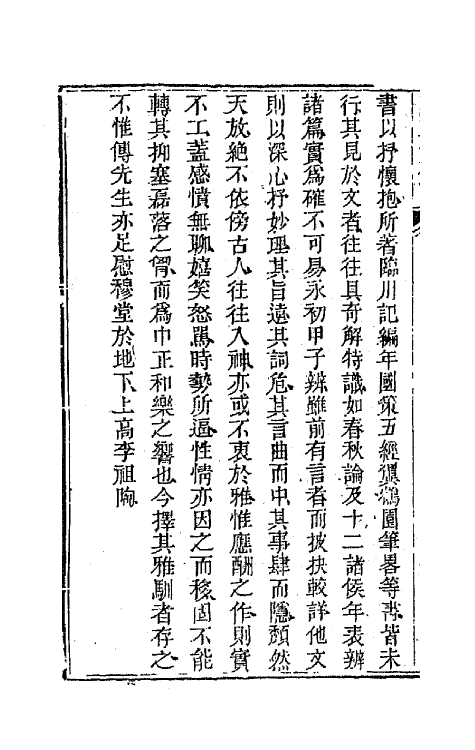 書以抒懷抱所著臨川記編年國策五經翼鷃園筆畧等書皆未
行其見於文者往往具奇解特識如春秋論及十二諸侯年表辨
諸篇實爲確不可易永初甲子辨雖前有言者而披抉較詳他文
則以深心抒妙理其旨遠其詞危其言曲而中其事肆而隱頹然
天放絶不依傍古人往往入神亦或不衷於雅惟應酬之作則實
不工蓋感憤無聊嬉笑怒罵時勢所逼性情亦因之而移固不能
轉其抑塞磊落之胷而爲中正和樂之響也今擇其雅馴者存之
不惟傳先生亦足慰穆堂於地下上高李祖陶